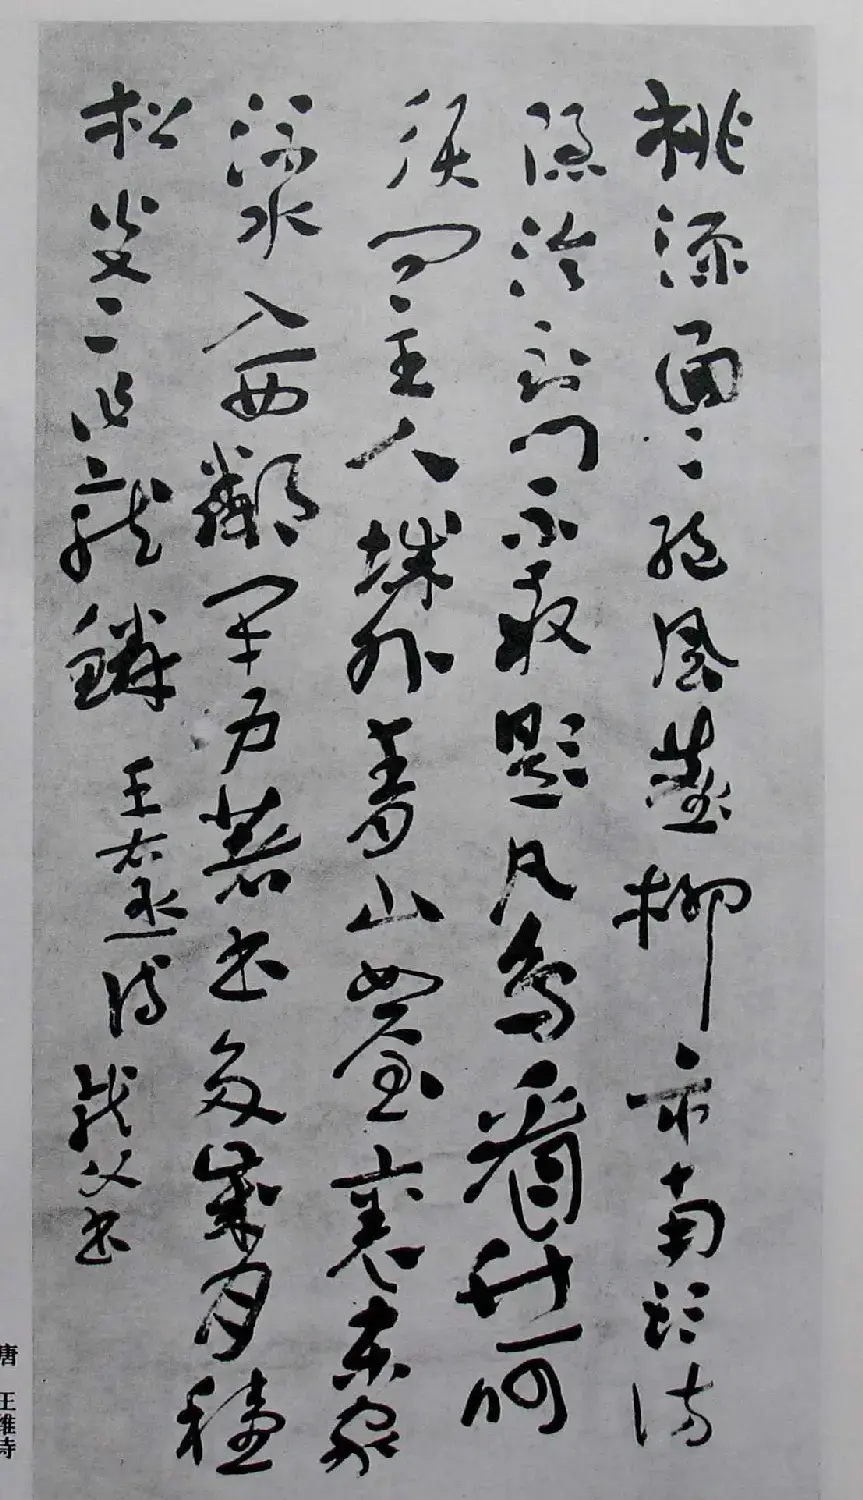 桃源面々絕風塵柳市南頭訪
隱淪到門不敢題凡鳥看竹何
須問主人城外青山如屋裏東家
流水入西鄰閉戶著書多歲月種
松龍鱗 王右丞詩 父書
唐 王維詩